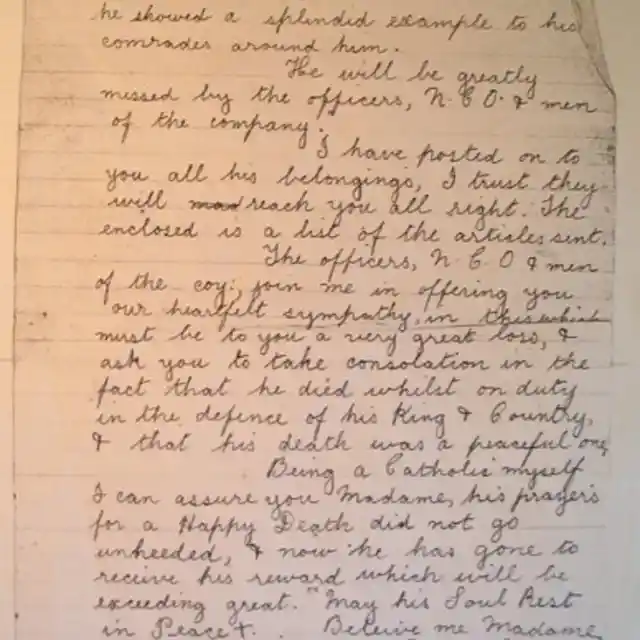 he showed a splendid example to his
comrades around him.
He will be greatly
missed by the officers, N.C.O. & men
of the company.
I have posted on to
you all his belongings, I trust they
will reach you all right. The
enclosed is a list of the articles sent.
The officers, N.C.O & men
of the coy., join me in offering you
our heartfelt sympathy, in this which
must be to you a very great loss, &
ask you to take consolation in the
fact that he died whilst on duty
in the defence of his King & Country,
& that his death was a peaceful one,
Being a Catholic myself
I can assure you Madame, his prayers
for a Happy Death did not go
unheeded, & now he has gone to
receive his reward which will be
exceeding great. "May his Soul Rest
in Peace +. Beleive me Madame